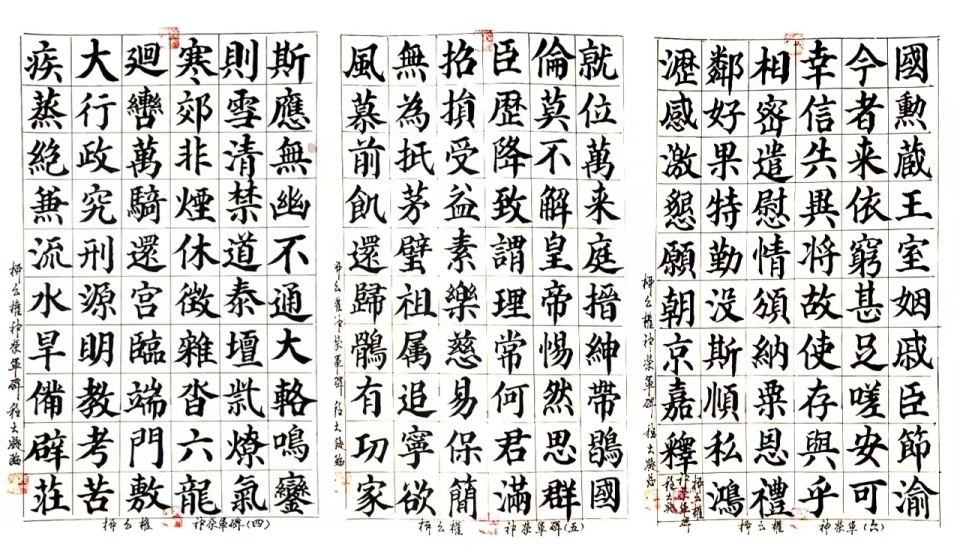 斯應無幽不通大輅鳴鑾
則雪清禁道泰壇燎氣
寒郊非煙休徵雜沓六龍
廻轡萬騎還宮臨端門敷
大行政究刑源明教考苦
疾蒸絕兼流水旱備辟莊
柳公權神策軍碑
柳公權 神策軍碑(四)
就位萬来庭搢紳帶鵾國
倫莫不解皇帝惕然思群
臣歷降致謂理常何君滿
招損受益素樂慈易保簡
無為抵茅璧祖属追寧欲
風慕前飢還歸鶻有㓛家
柳公權神策軍碑
柳公權 神策軍碑(五)
國勲蔵王室姻戚臣節渝
今者来依窮甚足嗟安可
幸信共異将故使存與乎
相宻遣慰情頒納粟恩禮
鄰好果特勤没斯順私鴻
瀝感激懇願朝京嘉釋
柳公權神策軍碑
柳公權 神策軍(六)